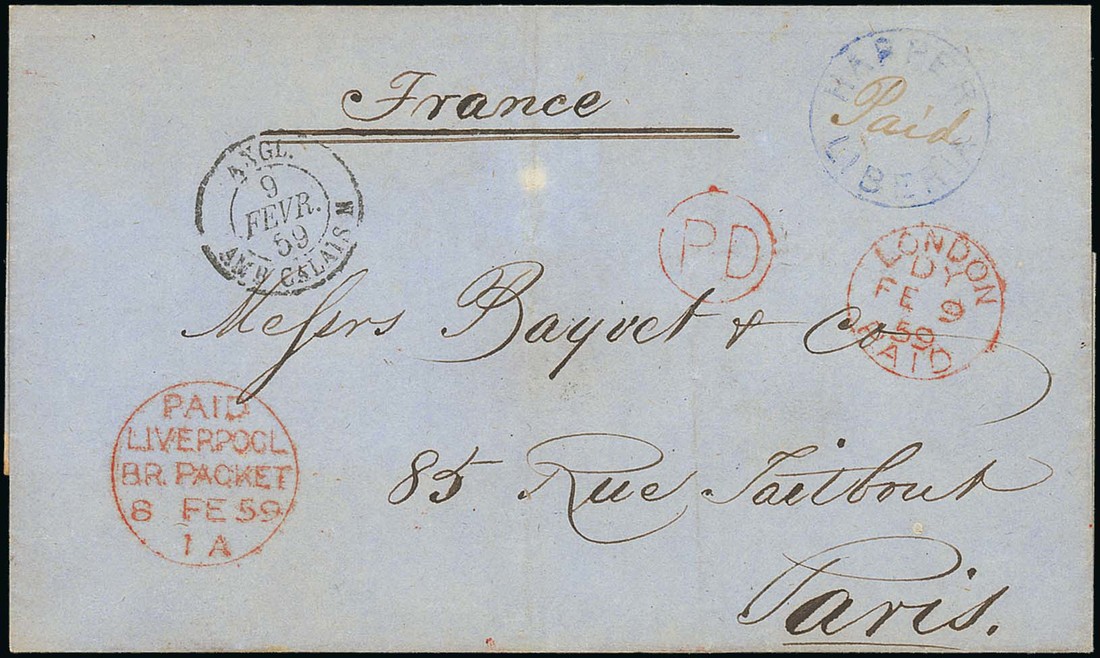 France
HARPER
Paid
LIBERIA
ANGL.
9
FEVR.
59
AMB. CALAIS
PD
LONDON
DY
FE 9
59
PAID
Messrs Bayvet & Co
PAID
LIVERPOOL
BR. PACKET
8 FE 59
1 A
85 Rue Taitbout
Paris.